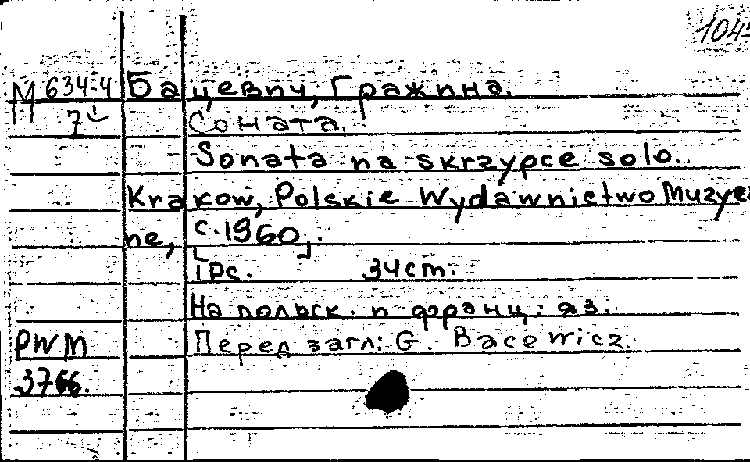 104
М 634-4 Бацевич, Гражина.
7
Соната.
Sonata na skrzypce solo.
Krakow, Polskie Wydawnictwo Muzycz
ne, с. 1960.
34 cm.
На польск. и франц. яз.
PWM Перед загл: G. Bacewicz.
3766.